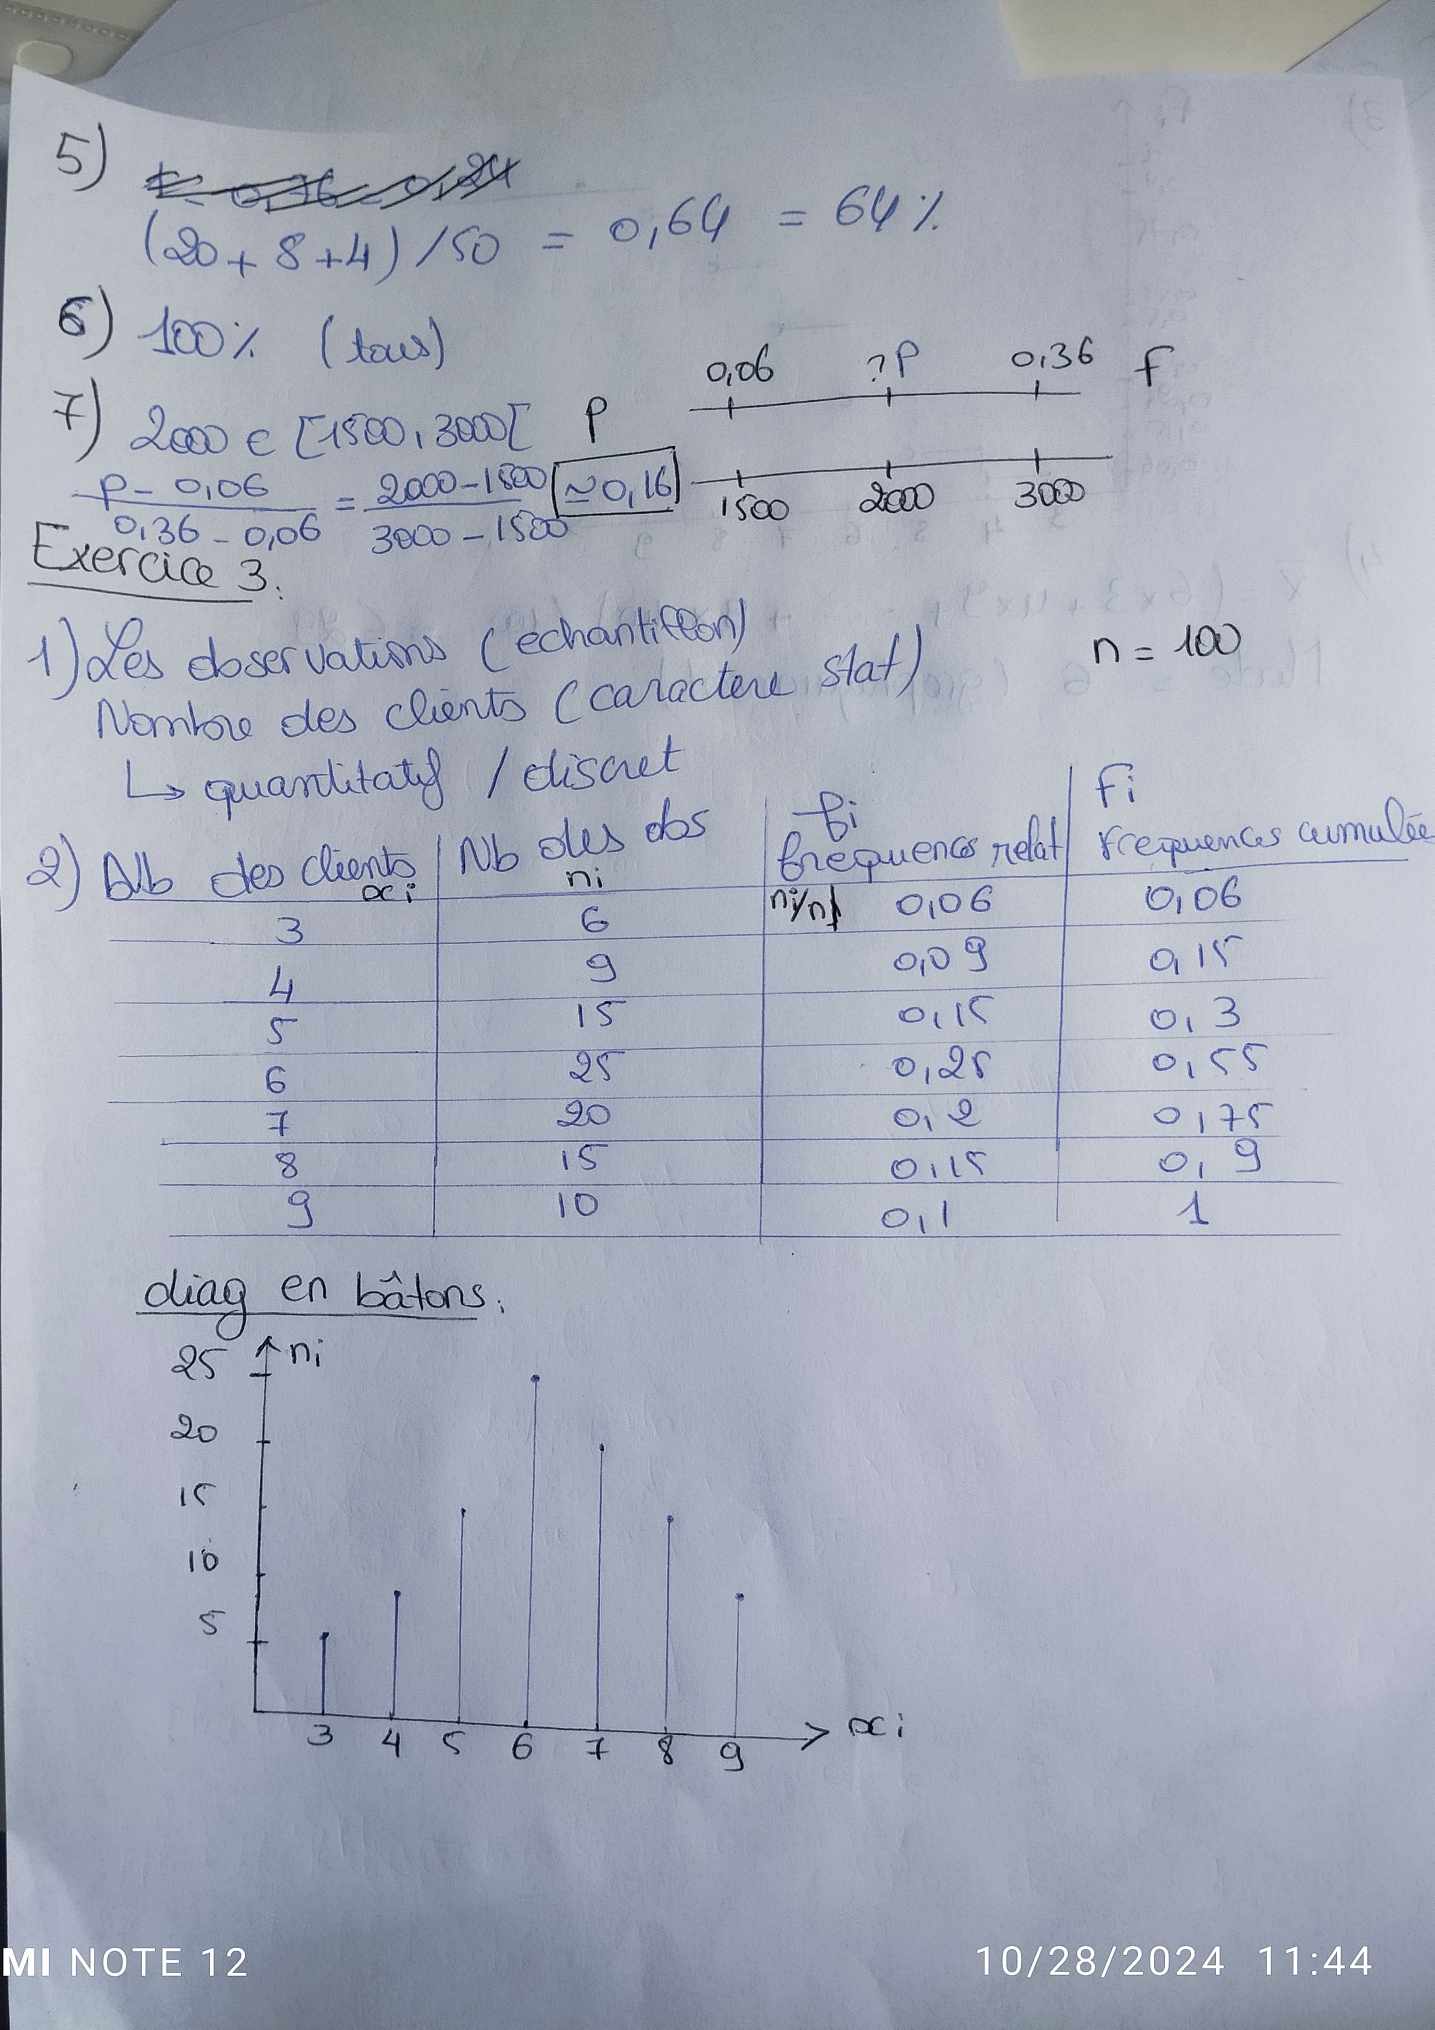 5)
(20+8+4)/50 = 0,64 = 64%
6) 100% (tous)
0,06 ?P 0,36 F
7) 2000 ∈ [1500, 3000[ P
1500 2000 3000
P - 0,06 / 0,36 - 0,06 = 2000-1500 / 3000-1500 ≃0,16
Exercice 3:
1) Les observations (echantillon)
n = 100
Nombre des clients (caractere stat)
↳ quantitatif / discret
2) Nb des clients xi | Nb des obs ni | fi frequences relat ni/n | Fi frequences cumulée
3 | 6 | 0,06 | 0,06
4 | 9 | 0,09 | 0,15
5 | 15 | 0,15 | 0,3
6 | 25 | 0,25 | 0,55
7 | 20 | 0,2 | 0,75
8 | 15 | 0,15 | 0,9
9 | 10 | 0,1 | 1
diag en bâtons:
25 ni
20
15
10
5
3 4 5 6 7 8 9 xi
MI NOTE 12
10/28/2024 11:44